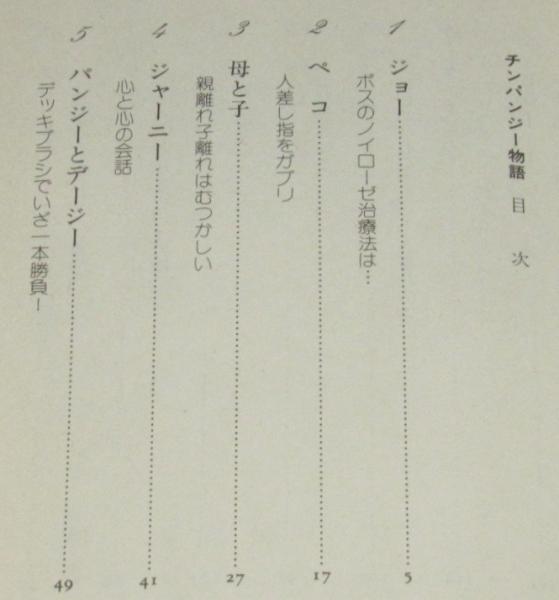 チンパンジー物語 目次
1 ジョー……5
ボスのノイローゼ治療法は…
2 ペコ……17
人差し指をガブリ
3 母と子……27
親離れ子離れはむつかしい
4 ジャーニー……41
心と心の会話
5 パンジーとデージー……49
デッキブラシでいざ一本勝負！